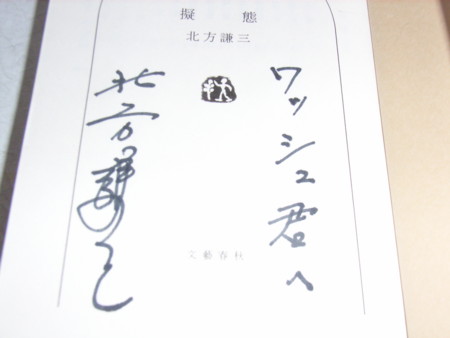 擬態
北方謙三
ワッシュ君へ
北方謙三
文藝春秋